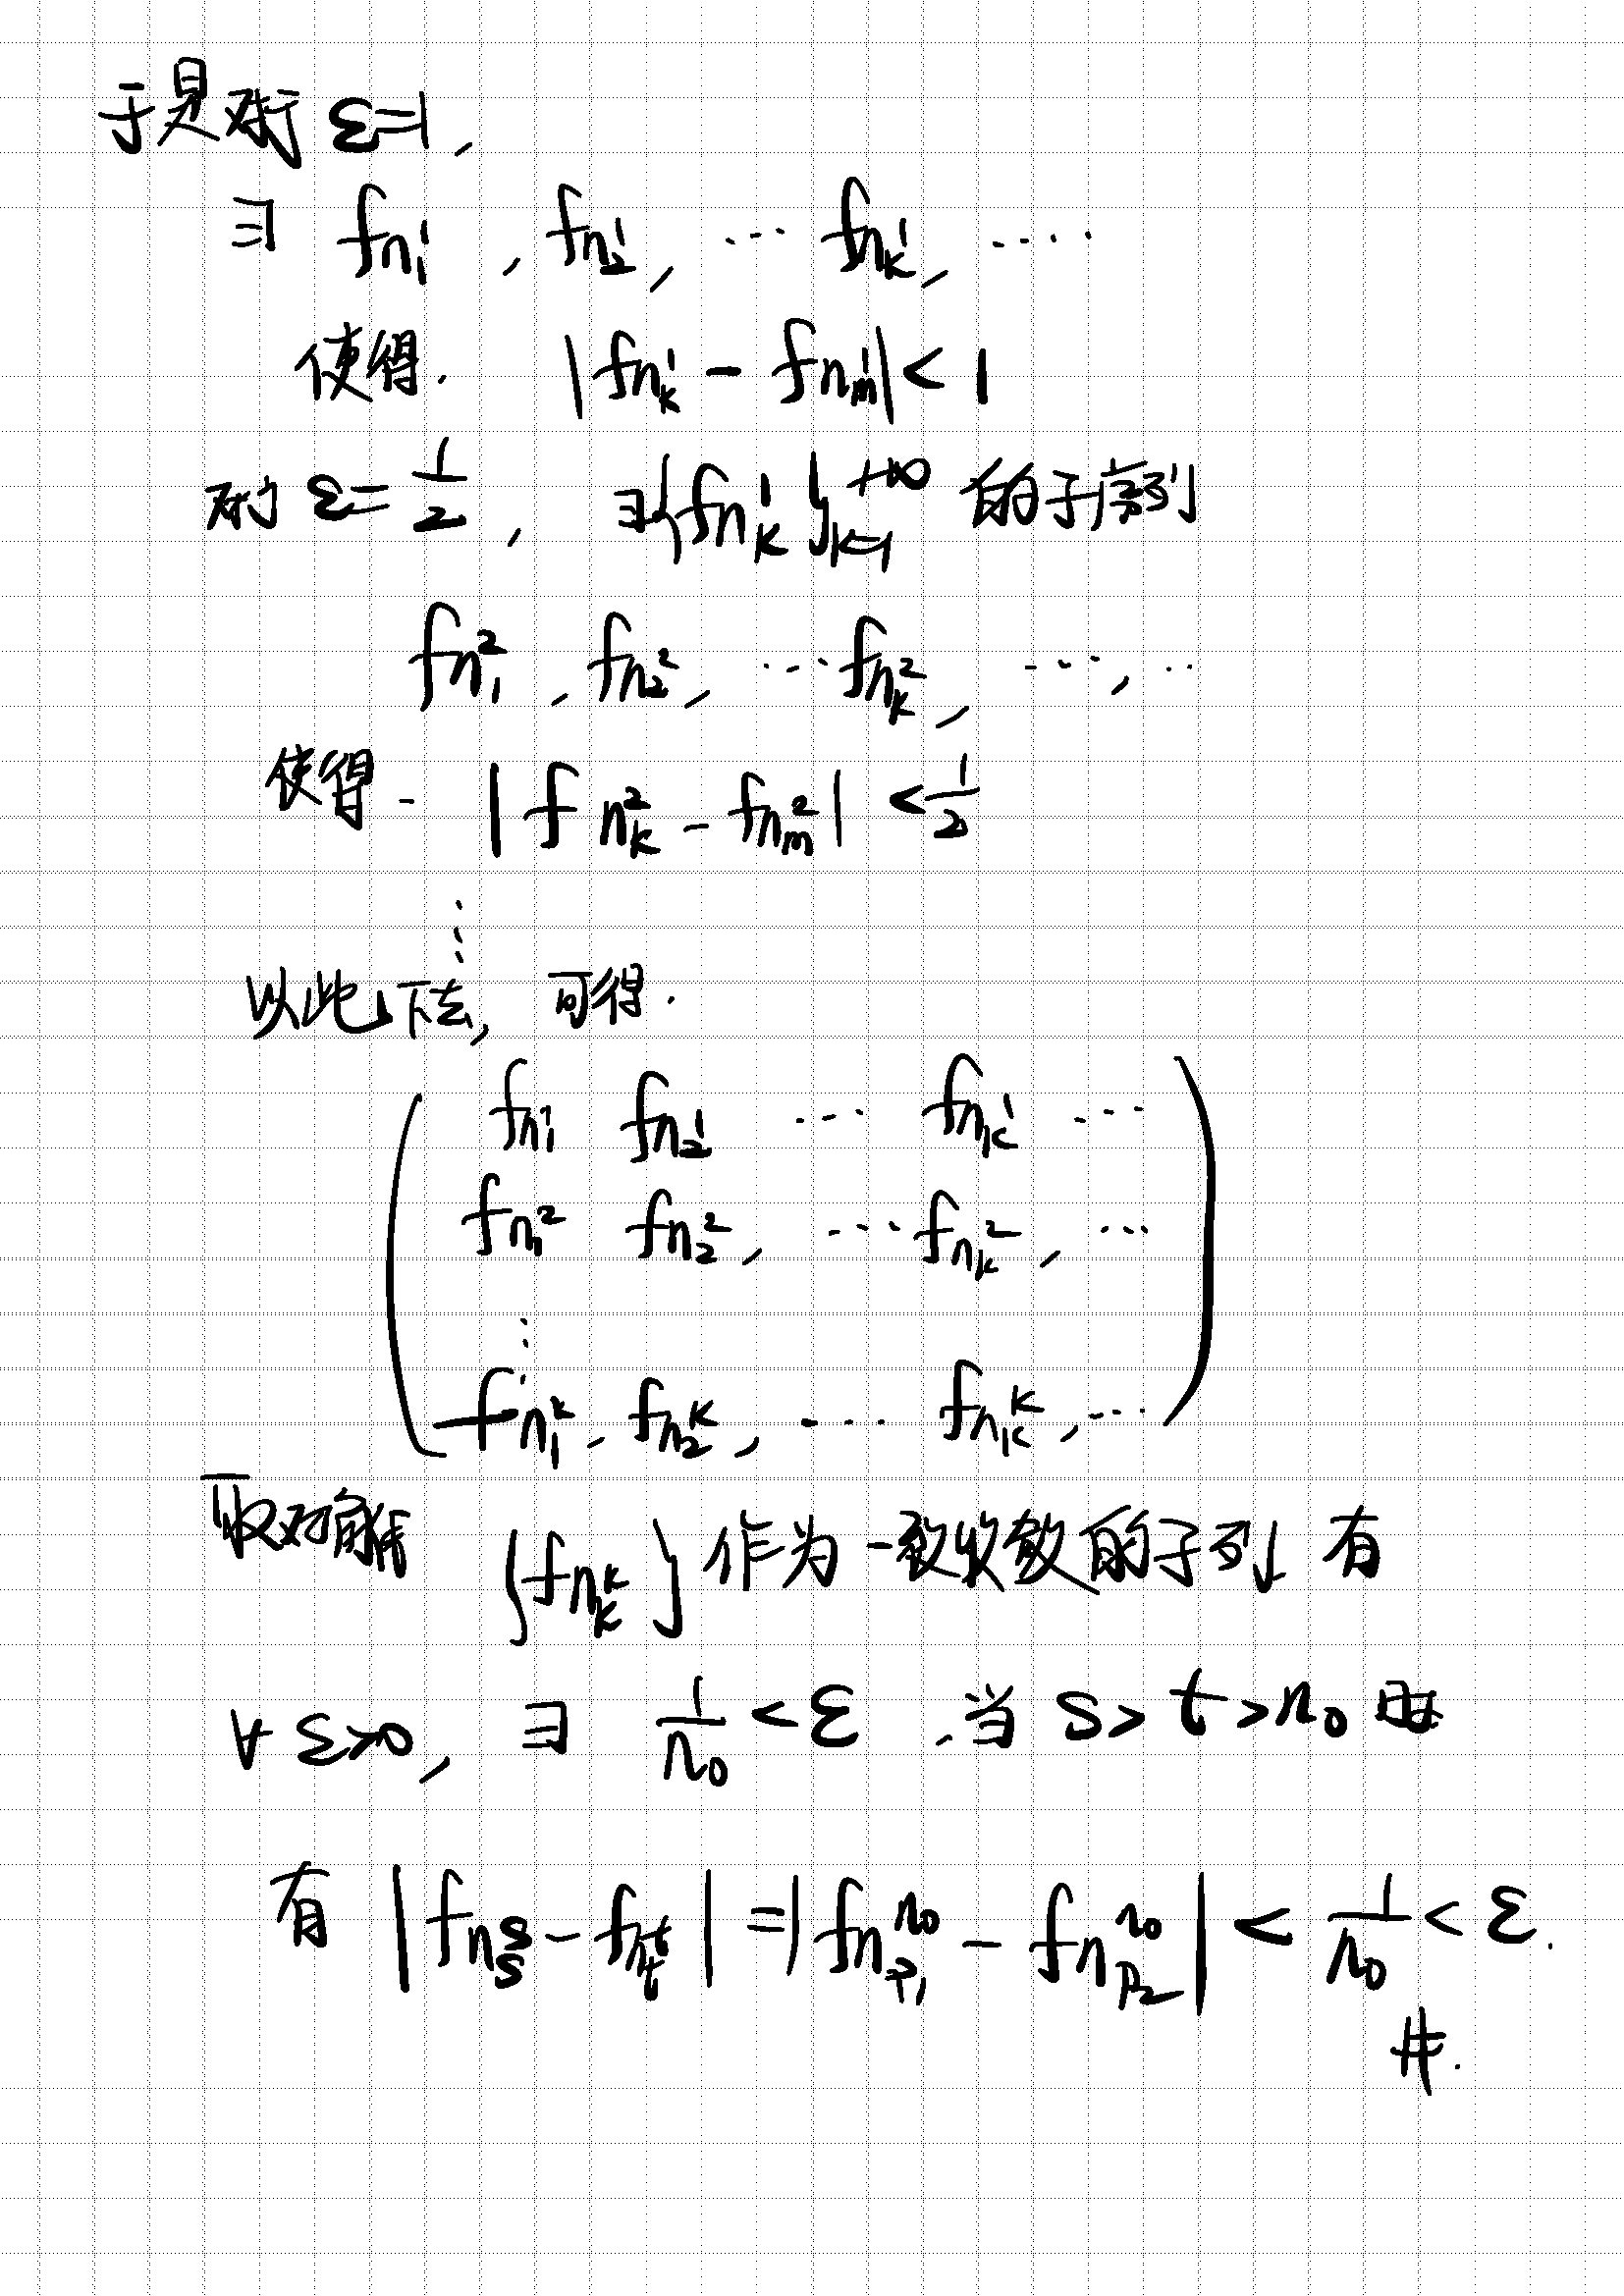 于是对于 ε=1,
∃ f_{n_1^1}, f_{n_2^1}, … f_{n_k^1}, ….
使得. |f_{n_k^1} - f_{n_m^1}| < 1
对 ε=1/2, ∃{f_{n_k^1}}_{k=1}^{+∞} 的子序列
f_{n_1^2}, f_{n_2^2}, … f_{n_k^2}, …, ..
使得 |f_{n_k^2} - f_{n_m^2}| < 1/2
⋮
以此下去, 可得.
( f_{n_1^1} f_{n_2^1} … f_{n_k^1} …
f_{n_1^2} f_{n_2^2}, … f_{n_k^2}, …
⋮
f_{n_1^k}, f_{n_2^k}, … f_{n_k^k}, … )
取对角线 {f_{n_k^k}} 作为一致收敛的子列 有
∀ ε>0, ∃ 1/n_0 < ε. 当 s > t > n_0 时
有 |f_{n_s^s} - f_{n_t^t}| = |f_{n_{p_1}^{n_0}} - f_{n_{p_2}^{n_0}}| < 1/n_0 < ε.
#.